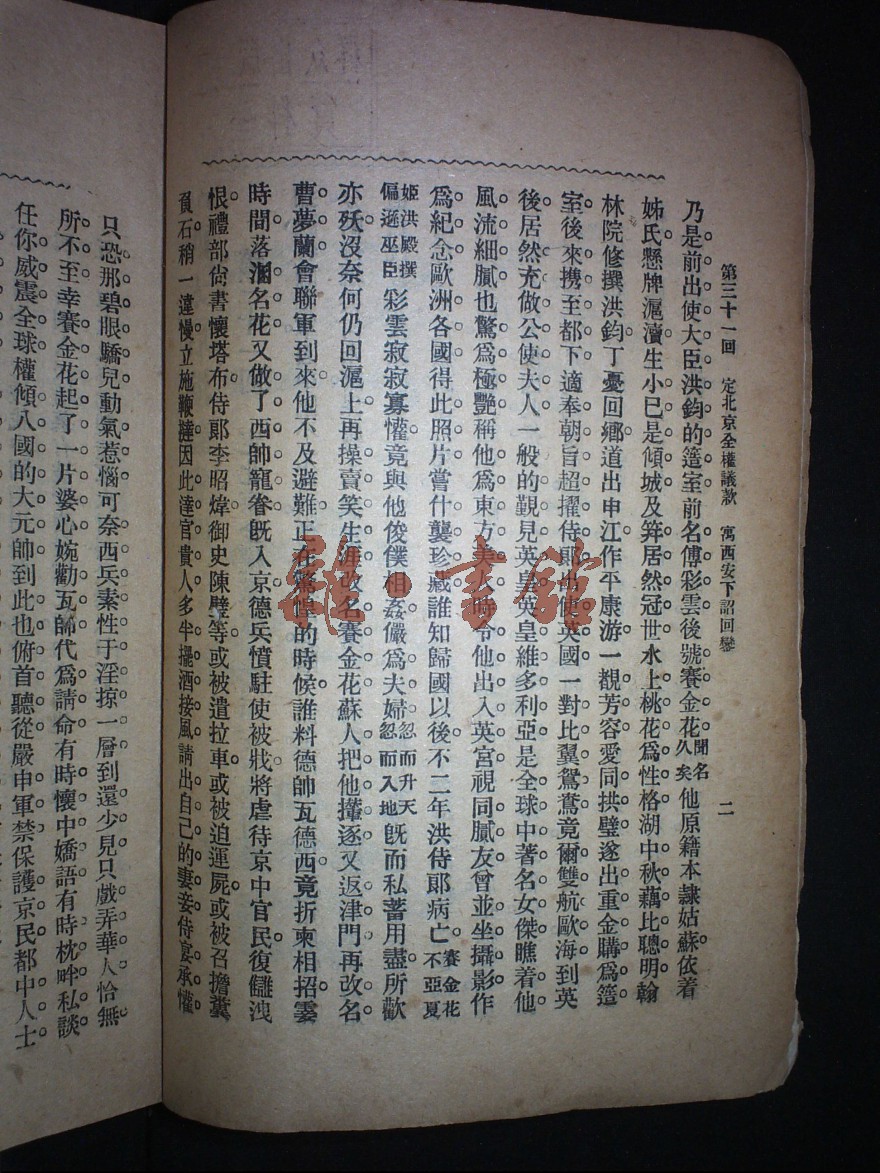 第三十一回 定北京全權議款 寓西安下詔回鑾 二
乃是前出使大臣洪鈞的簉室前名傅彩雲後號賽金花聞名久矣他原籍本隸姑蘇依着
姊氏懸牌滬瀆生小已是傾城及笄居然冠世水上桃花爲性格湖中秋藕比聰明翰
林院修撰洪鈞丁憂回鄉道出申江作平康游一覩芳容愛同拱璧遂出重金購爲簉
室後來攜至都下適奉朝旨超擢侍郎出使英國一對比翼鴛鴦竟爾雙航歐海到英
後居然充做公使夫人一般的覲見英皇英皇維多利亞是全球中著名女傑瞧着他
風流細膩也驚爲極艷稱他爲東方美人時令他出入英宮視同膩友曾並坐攝影作
爲紀念歐洲各國得此照片嘗什襲珍藏誰知歸國以後不二年洪侍郎病亡賽金花不亞夏
姬洪殿撰偏遜巫臣彩雲寂寂寡懽竟與他俊僕相姦儼爲夫婦忽而升天忽而入地旣而私蓄用盡所歡
亦殀沒奈何仍回滬上再操賣笑生涯改名賽金花蘇人把他攆逐又返津門再改名
曹夢蘭會聯軍到來他不及避難正在驚惶的時候誰料德帥瓦德西竟折柬相招霎
時間落溷名花又做了西帥寵眷旣入京德兵憤駐使被戕將虐待京中官民復讎洩
恨禮部尙書懷塔布侍郎李昭煒御史陳璧等或被遣拉車或被迫運屍或被召擔糞
負石稍一違慢立施鞭撻因此達官貴人多半擺酒接風請出自己的妻妾侍宴承懽
只恐那碧眼驕兒動氣惹惱可奈西兵素性于淫掠一層到還少見只戲弄華人恰無
所不至幸賽金花起了一片婆心婉勸瓦帥代爲請命有時懷中嬌語有時枕畔私談
任你威震全球權傾八國的大元帥到此也俯首聽從嚴申軍禁保護京民都中人士
雜·書館